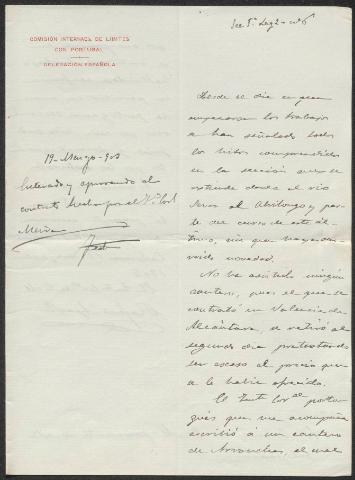 COMISIÓN INTERNAC. DE LÍMITES
CON PORTUGAL
DELEGACIÓN ESPAÑOLA
19-Marzo-903
Enterado y aprovando el
contrato hecho por el
Sec. 1ª Leg. 2 - nº 6
Desde el dia en que
empezaron los trabajos
se han señalado todos
los hitos comprendidos
en la sección que se
extiende desde el rio
Sever al Abrilongo y par-
te del curso de este úl-
timo, sin que haya ocu-
rrido novedad.
No ha asistido ningún
cantero, pues el que se
contrató en Valencia de
Alcántara, se retiró al
segundo dia pretextando
ser escaso el precio que
se le habia ofrecido.
El Tente Corel portu-
gués que me acompaña
escribió á un cantero
de Arronches, el cual